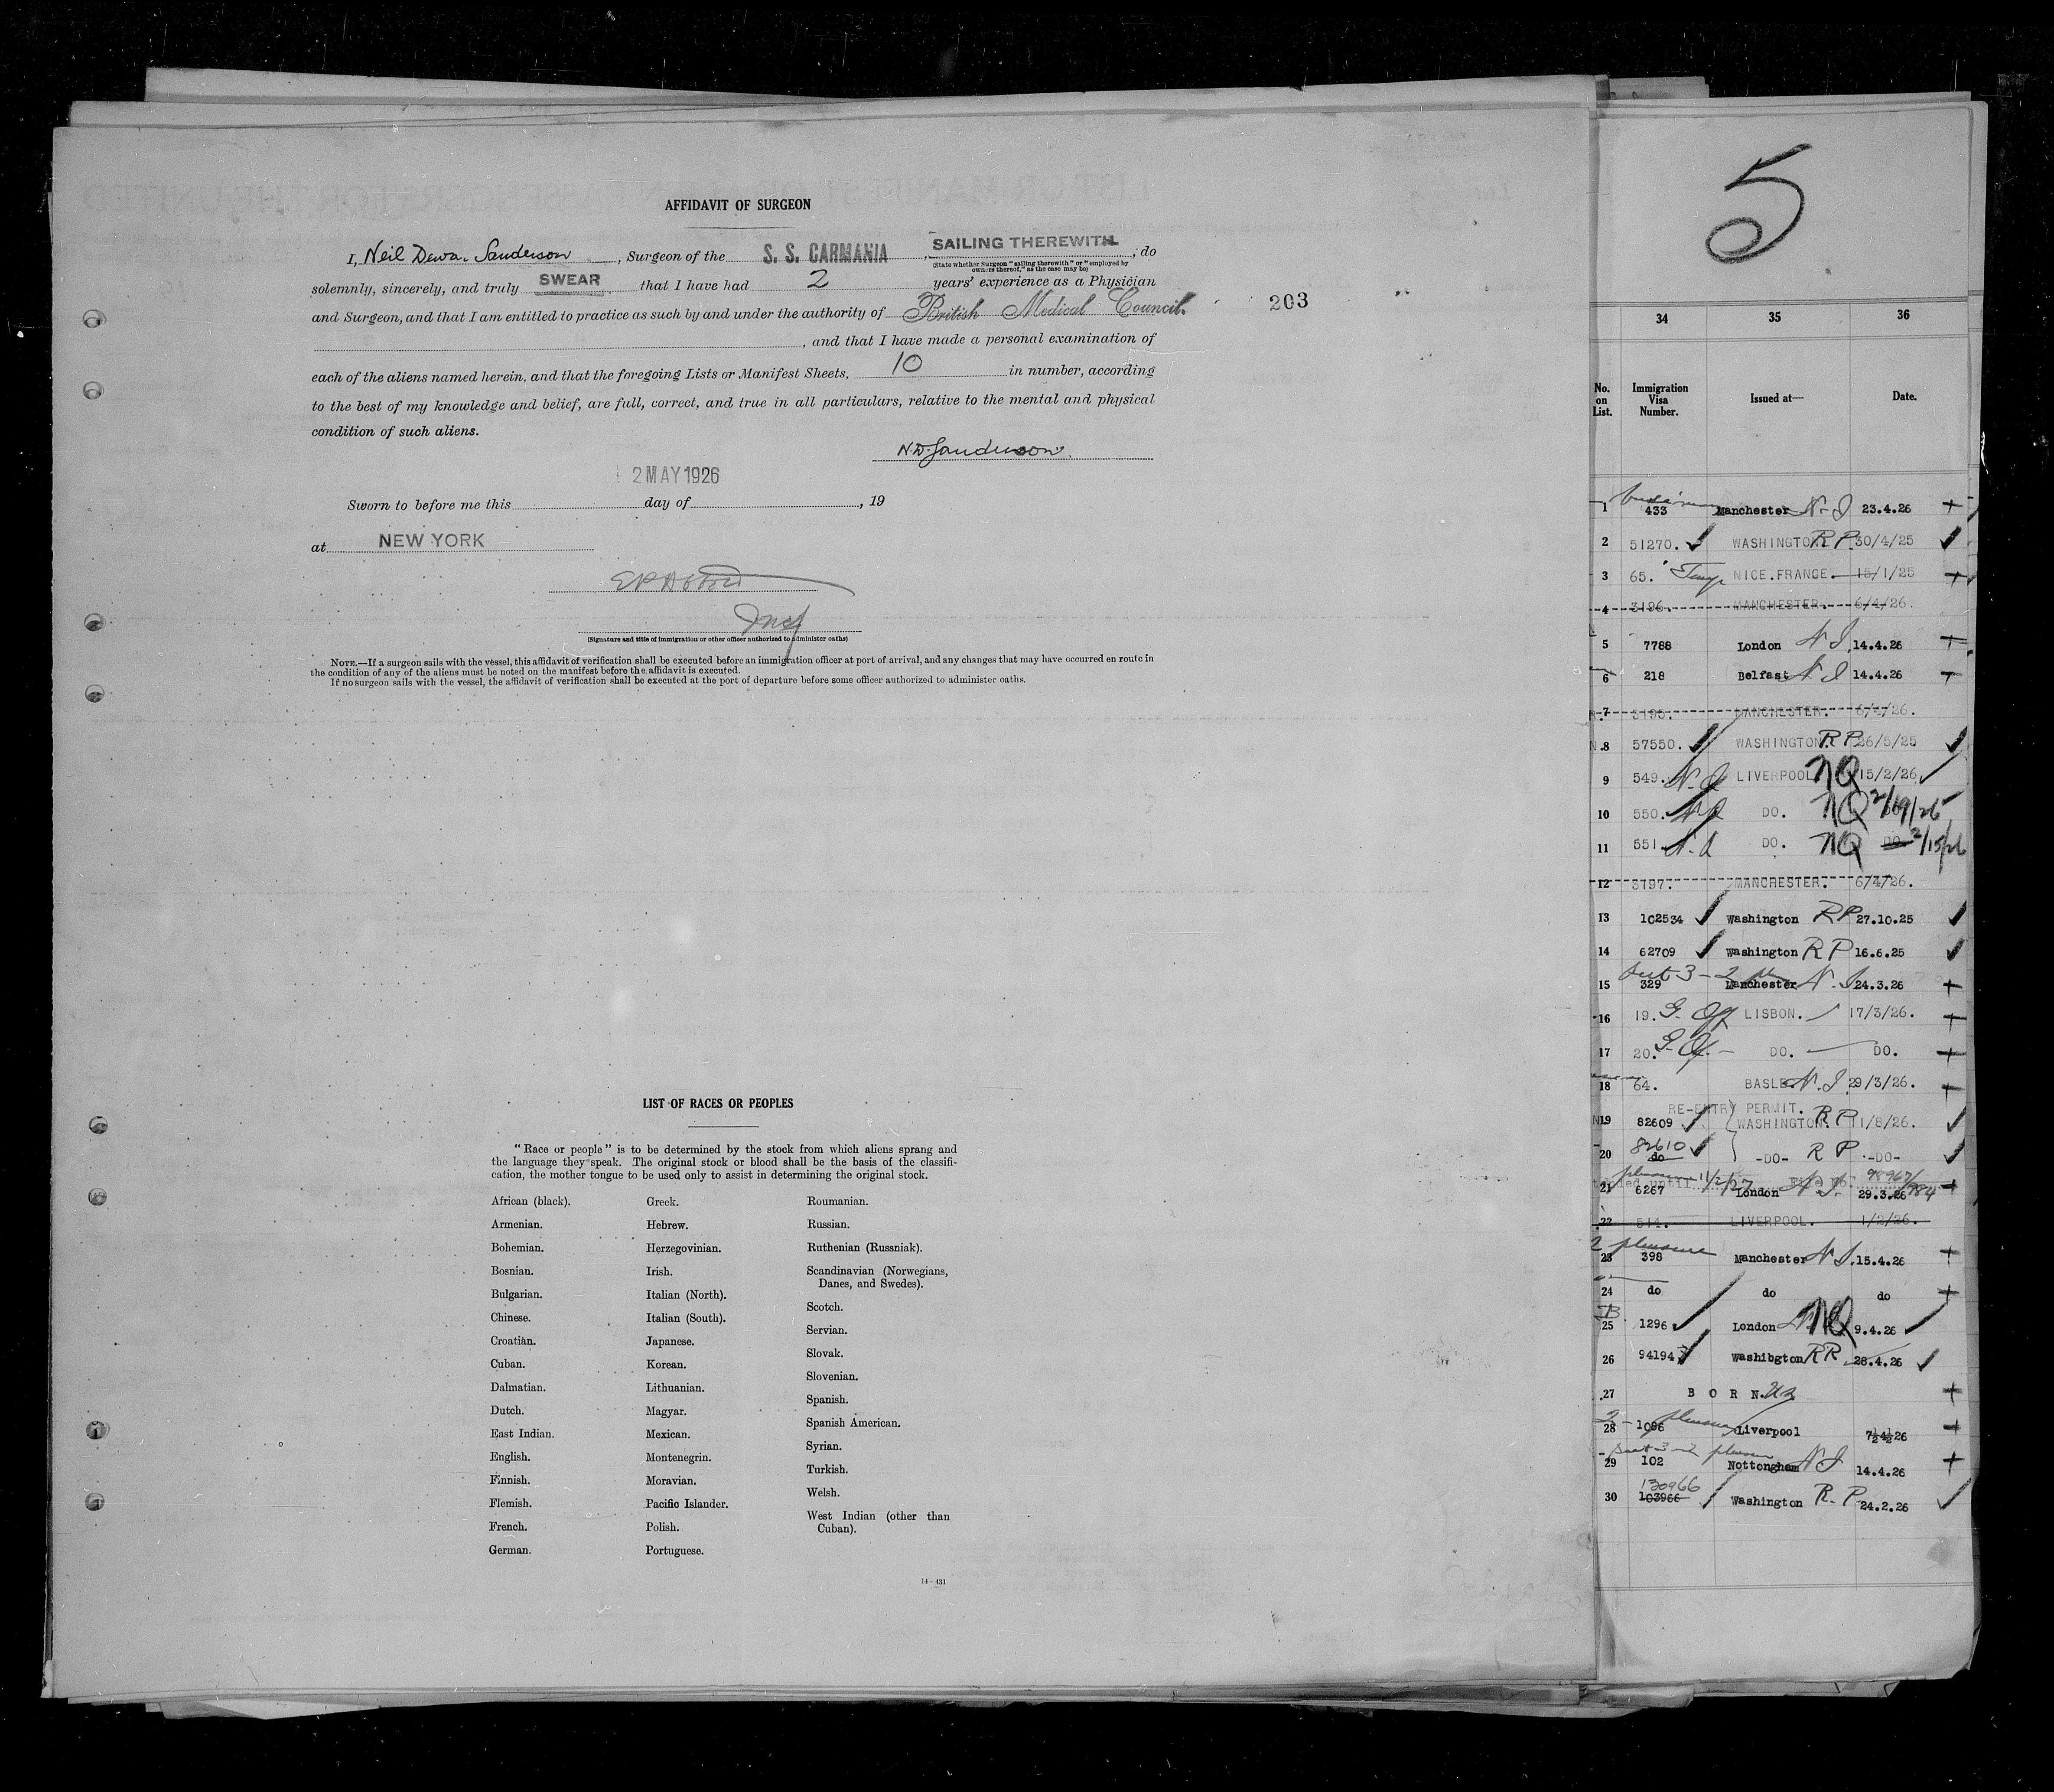 AFFIDAVIT OF SURGEON
I, Neil Dewar Sanderson, Surgeon of the S. S. CARMANIA, SAILING THEREWITH; do
(State whether Surgeon "sailing therewith" or "employed by
owners thereof," as the case may be)
solemnly, sincerely, and truly SWEAR that I have had 2 years' experience as a Physician
and Surgeon, and that I am entitled to practice as such by and under the authority of British Medical Council.
, and that I have made a personal examination of
each of the aliens named herein, and that the foregoing Lists or Manifest Sheets, 10 in number, according
to the best of my knowledge and belief, are full, correct, and true in all particulars, relative to the mental and physical
condition of such aliens.
N.D. Sanderson.
2 MAY 1926
Sworn to before me this day of , 19
at NEW YORK
Insp
(Signature and title of immigration or other officer authorized to administer oaths)
NOTE.—If a surgeon sails with the vessel, this affidavit of verification shall be executed before an immigration officer at port of arrival, and any changes that may have occurred en route in
the condition of any of the aliens must be noted on the manifest before the affidavit is executed.
If no surgeon sails with the vessel, the affidavit of verification shall be executed at the port of departure before some officer authorized to administer oaths.
203
LIST OF RACES OR PEOPLES
"Race or people" is to be determined by the stock from which aliens sprang and
the language they speak. The original stock or blood shall be the basis of the classifi-
cation, the mother tongue to be used only to assist in determining the original stock.
African (black).
Armenian.
Bohemian.
Bosnian.
Bulgarian.
Chinese.
Croatian.
Cuban.
Dalmatian.
Dutch.
East Indian.
English.
Finnish.
Flemish.
French.
German.
Greek.
Hebrew.
Herzegovinian.
Irish.
Italian (North).
Italian (South).
Japanese.
Korean.
Lithuanian.
Magyar.
Mexican.
Montenegrin.
Moravian.
Pacific Islander.
Polish.
Portuguese.
Roumanian.
Russian.
Ruthenian (Russniak).
Scandinavian (Norwegians,
Danes, and Swedes).
Scotch.
Servian.
Slovak.
Slovenian.
Spanish.
Spanish American.
Syrian.
Turkish.
Welsh.
West Indian (other than
Cuban).
14—431
5
34 35 36
No. on List. Immigration Visa Number. Issued at— Date.
1 433 Manchester N-I 23.4.26
2 51270. WASHINGTON. RP 30/4/25
3 65. Temp NICE.FRANCE. 15/1/25
4 3196. MANCHESTER. 6/4/26.
5 7788 London N I 14.4.26
6 218 Belfast N I 14.4.26
7 3195. MANCHESTER. 6/4/26.
8 57550. WASHINGTON RP 26/5/25
9 549. LIVERPOOL NQ 15/2/26
10 550. DO. NQ 2/19/26
11 551 DO. NQ DO 2/15/26
12 3197. MANCHESTER. 6/4/26.
13 102534 Washington RP 27.10.25
14 62709 Washington RP 16.6.25
15 329 Manchester N-I 24.3.26
16 19. LISBON. 17/3/26.
17 20. DO. DO.
18 64. BASLE N.I 29/3/26.
RE-ENTRY PERMIT.
19 82609 WASHINGTON. RP 11/8/26.
82610
20 do -DO- RP -DO-
pleasure
21 6267 London N I. 29.3.26
22 514. LIVERPOOL. 1/2/26.
2 pleasure
23 398 Manchester N I. 15.4.26
24 do do do
25 1296 London NQ 9.4.26
26 94194 Washibgton 28.4.26
27 B O R N. US
pleasure
28 1096 Liverpool 7½4½26
29 102 Nottongham N I 14.4.26
130966
30 103966 Washington R.P 24.2.26